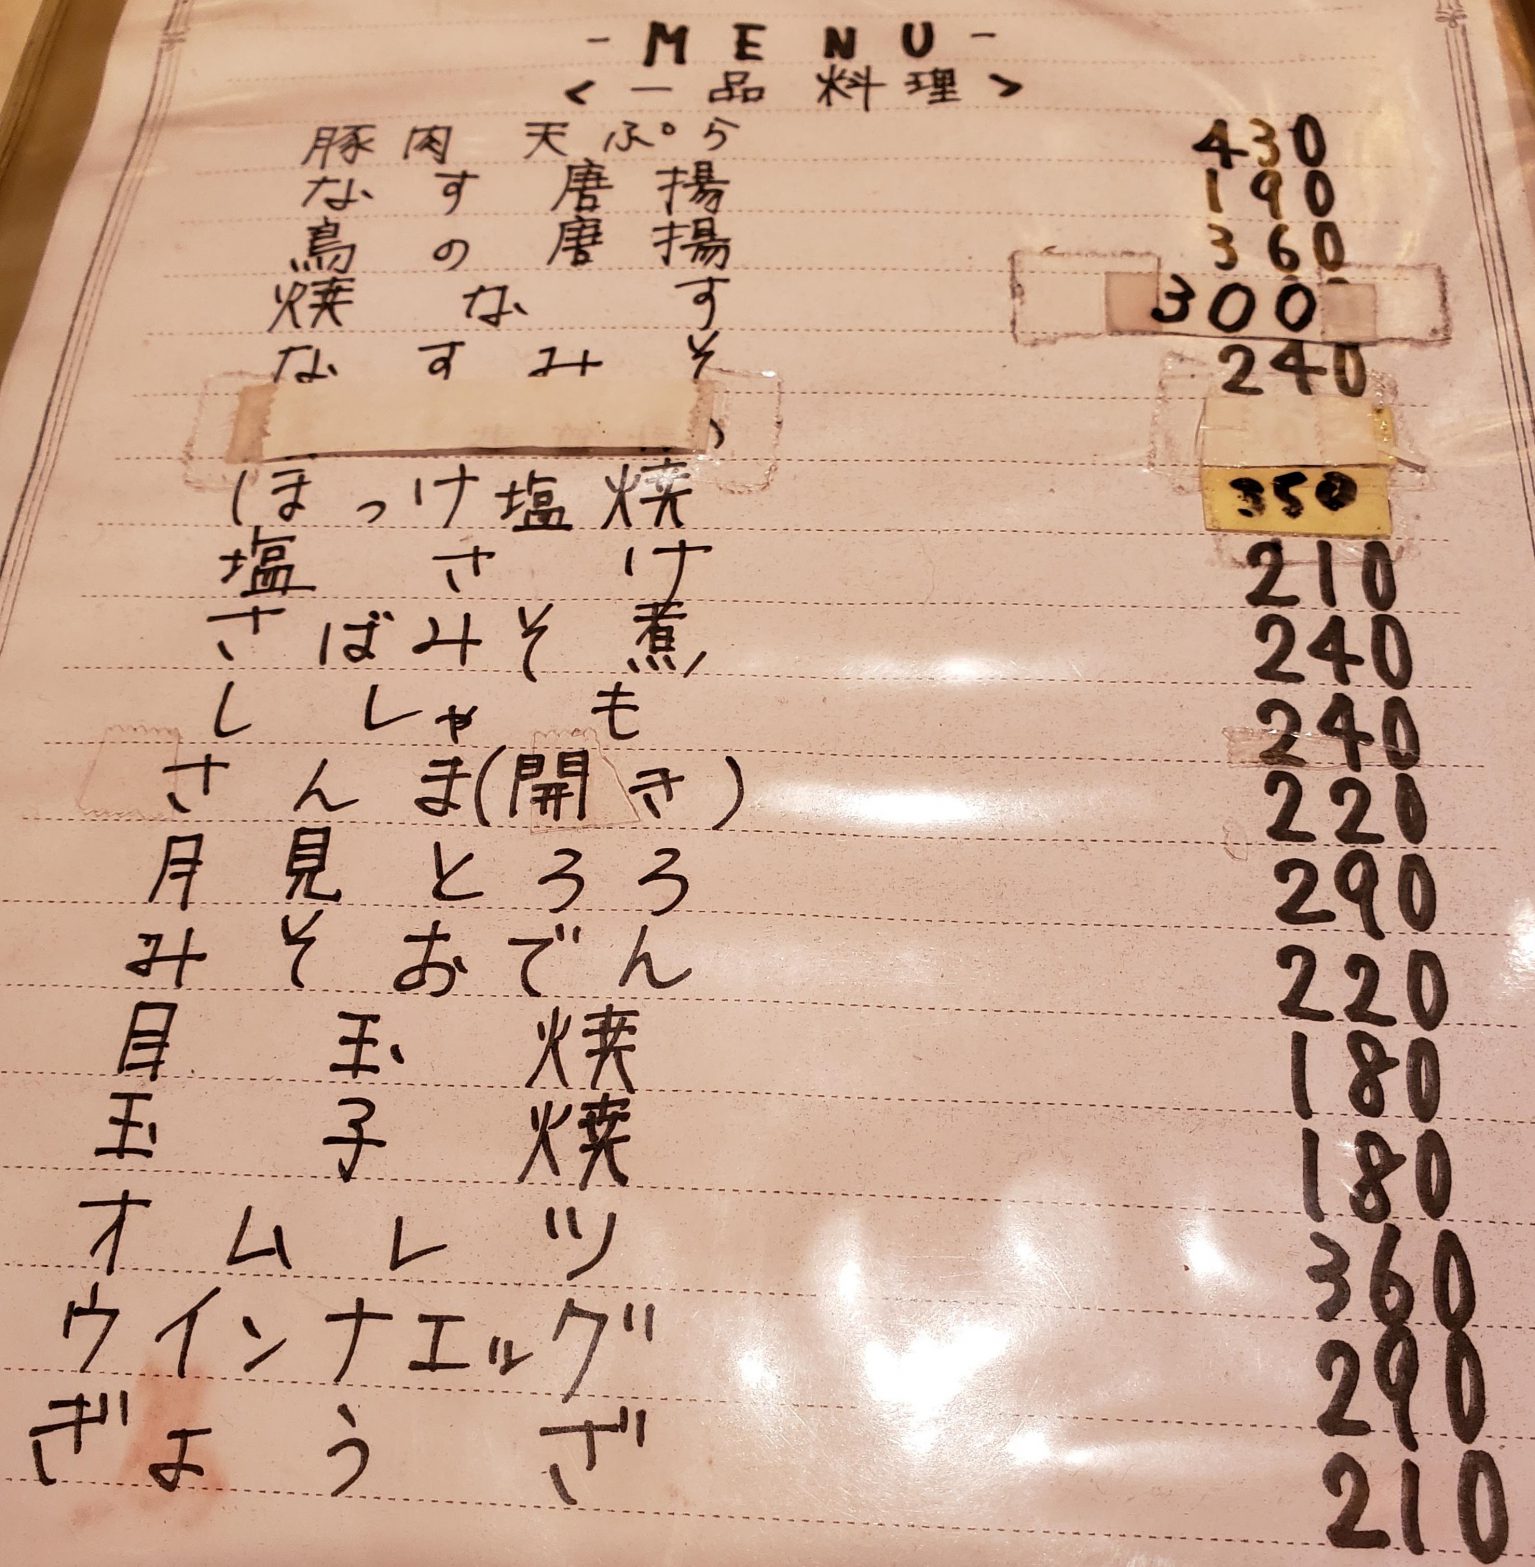 - MENU -
<一品料理>
豚肉天ぷら 430
なす唐揚 190
鳥の唐揚 360
焼なす 300
なすみそ 240
ほっけ塩焼 350
塩さけ 210
さばみそ煮 240
ししゃも 240
さんま(開き) 220
月見とろろ 290
みそおでん 220
目玉焼 180
玉子焼 180
オムレツ 360
ウインナエッグ 290
ぎょうざ 210